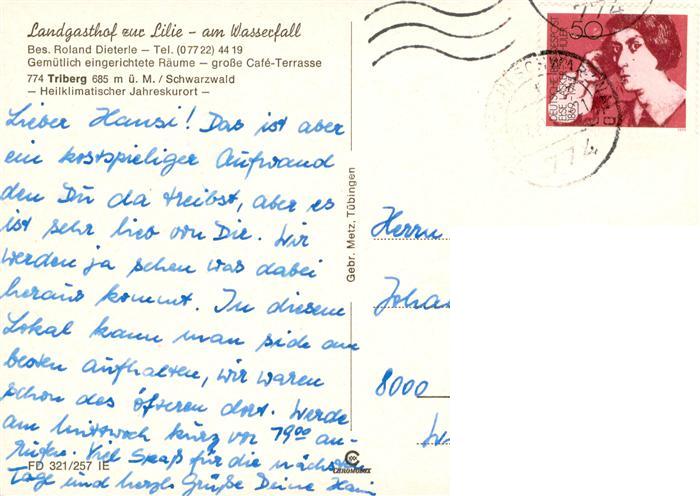 Landgasthof zur Lilie - am Wasserfall
Bes. Roland Dieterle – Tel. (0 77 22) 44 19
Gemütlich eingerichtete Räume – große Café-Terrasse
774 Triberg 685 m ü. M. / Schwarzwald
– Heilklimatischer Jahreskurort –
Lieber Hansi! Das ist aber
ein kostspieliger Aufwand
den Du da treibst, aber es
ist sehr lieb von Dir. Wir
werden ja sehen was dabei
heraus kommt. In diesem
Lokal kann man sich am
besten aufhalten, wir waren
schon des öfteren dort. Werde
am Mittwoch kurz vor 19⁰⁰ an-
rufen. Viel Spaß für die nächsten
Tage und herzl. Grüße Deine
FD 321/257 IE
CHROMOBOX
Gebr. Metz, Tübingen
774
50
DEUTSCHE BUNDESPOST
ELSE LASKER-SCHÜLER
774
Herrn
Joha
8000